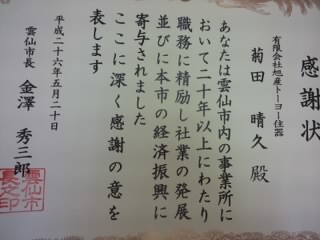 感謝状
有限会社旭産トーヨー住器
菊田 晴久 殿
あなたは雲仙市内の事業所に
おいて二十年以上にわたり
職務に精励し社業の発展
並びに本市の経済振興に
寄与されました
ここに深く感謝の意を
表します
平成二十六年五月二十日
雲仙市長 金澤 秀三郎
雲仙市
長之印